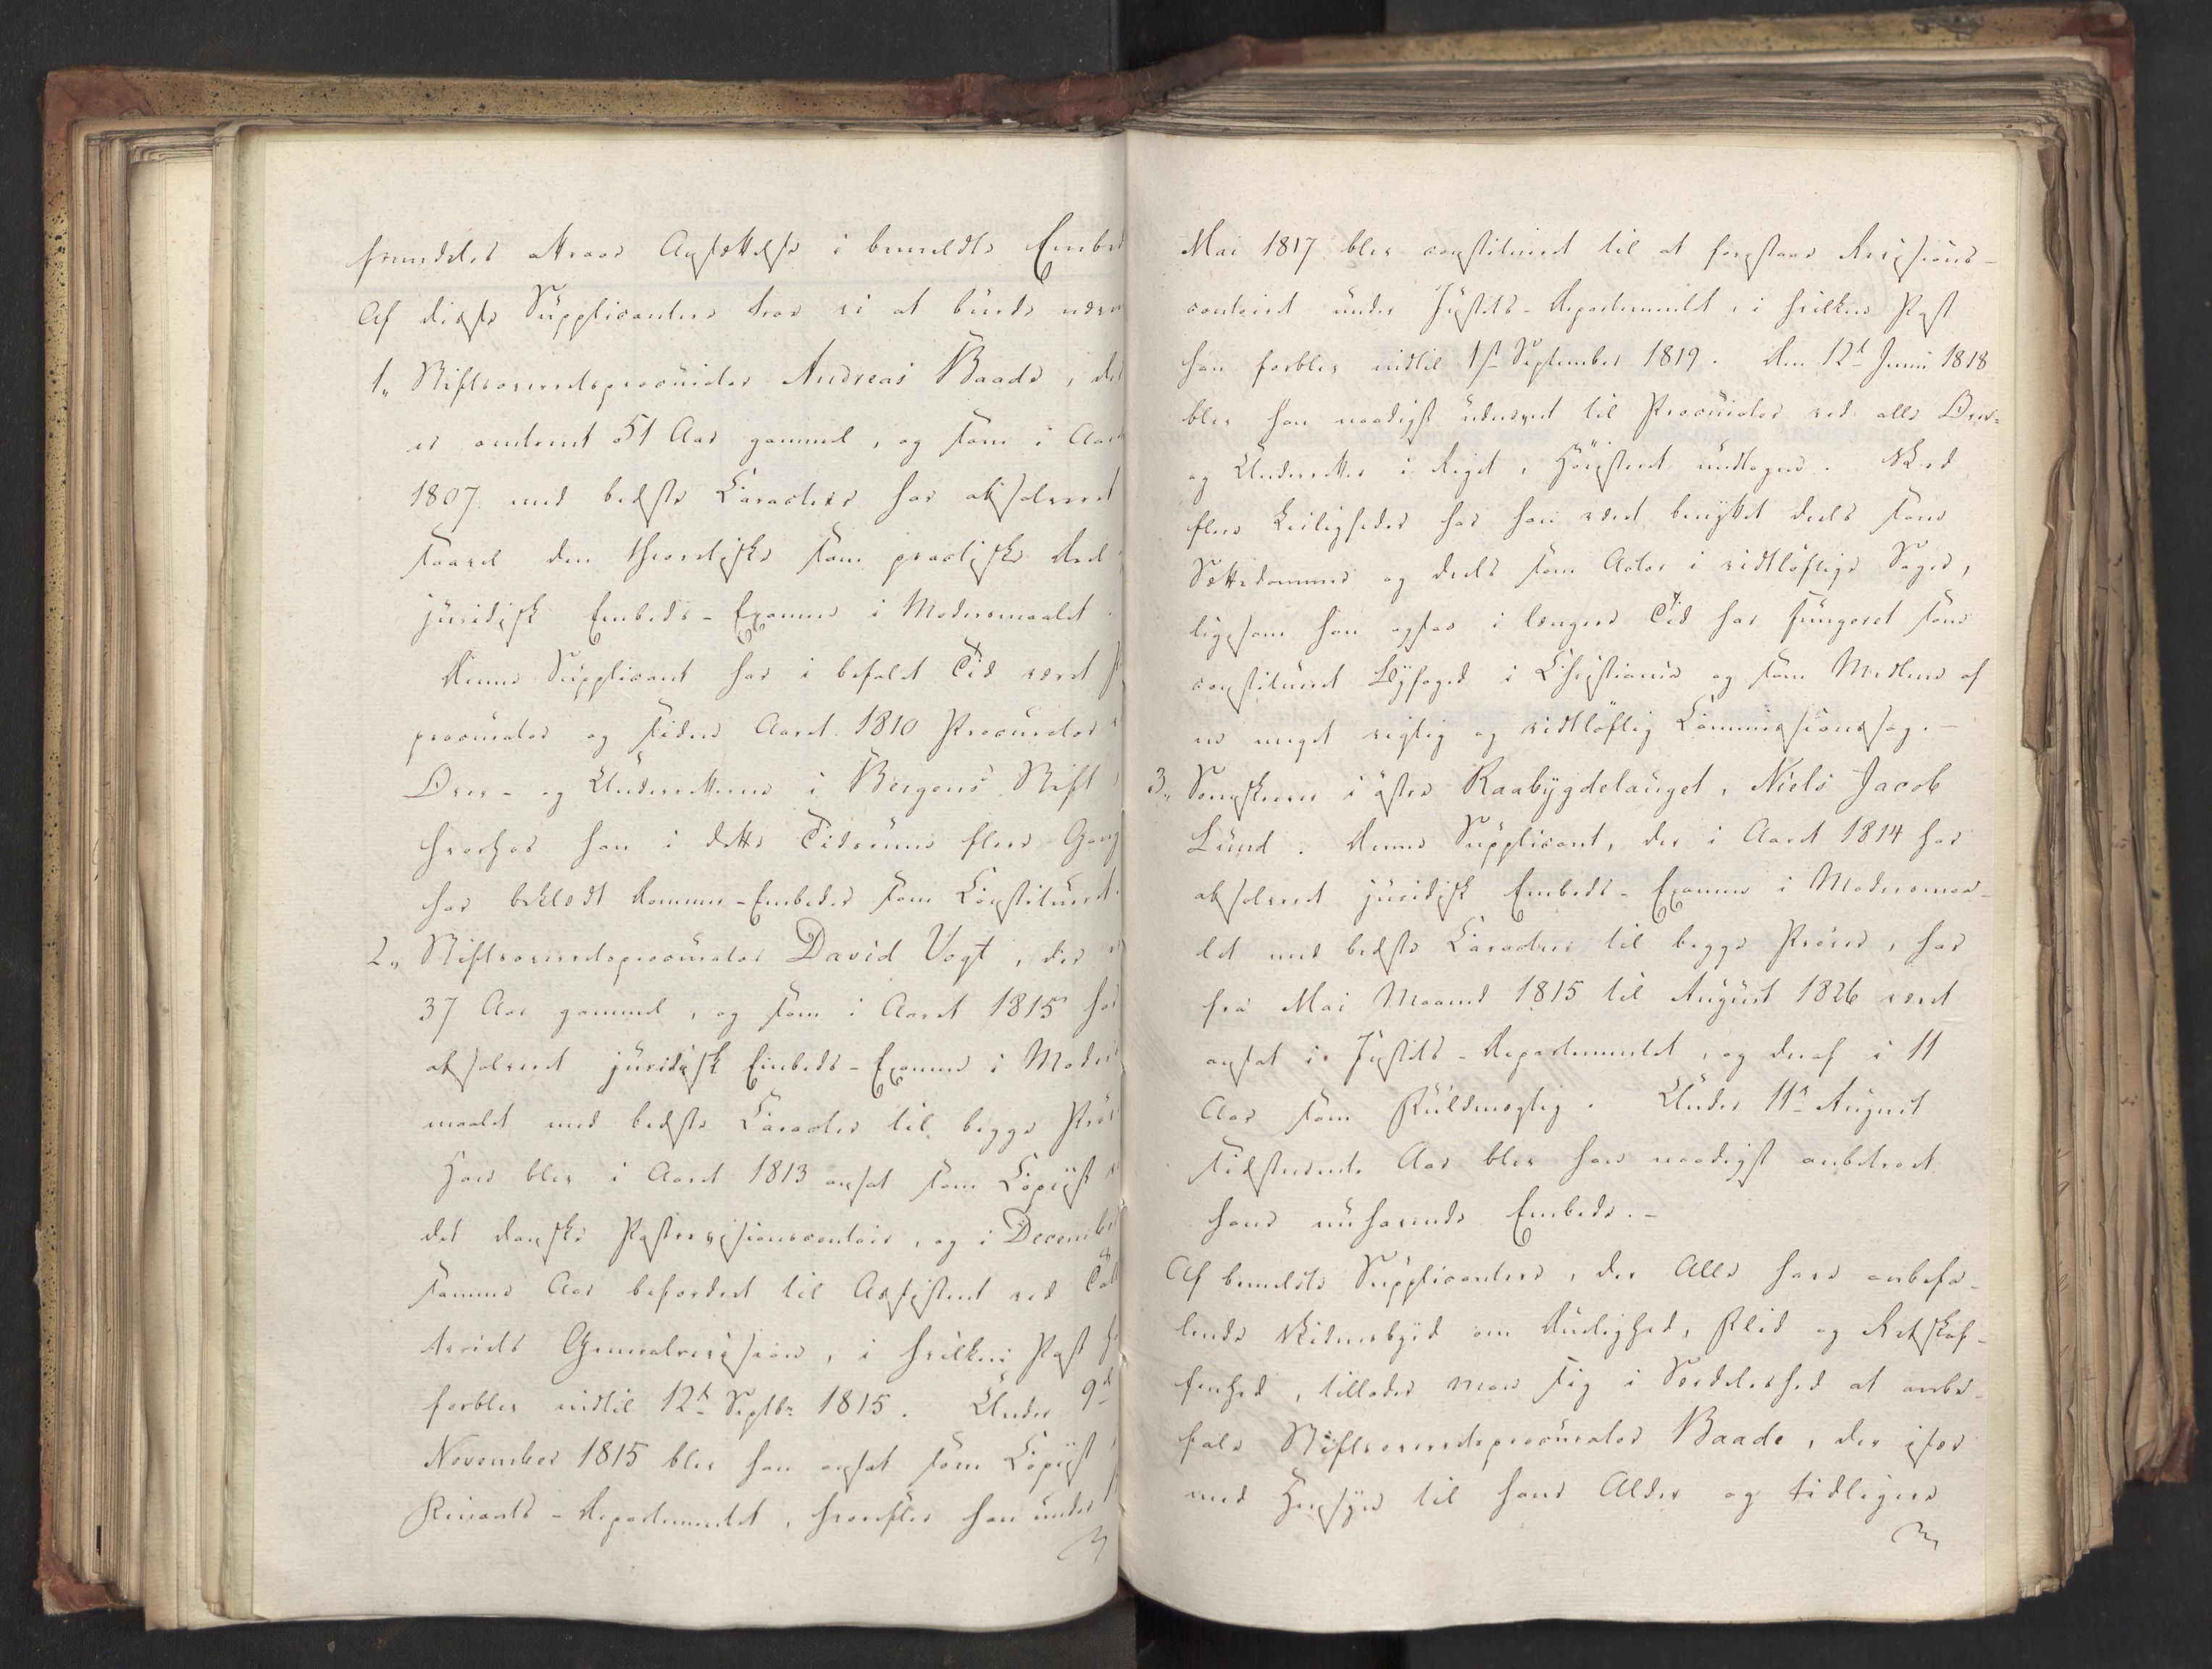 fremdeles attraae Ansættelse i bemeldte Embe
Af disse Supplicantere troe vi at burde nævn
1, Stiftsoverretsprocurator Andreas Baade, der
er omtrent 51 Aar gammel, og som i Aar
1807 med bedste Caracteer har absolveret
saavel den theoretiske som practiske Deel
juridisk Embeds-Examen i Modersmaalet.
Denne Supplicant har i befalet Tid været
procurator og siden Aaret 1810 Procurator
Over- og Underretterne i Bergens Stift,
hvorhos han i dette Tidsrum flere Gang
har beklædt Dommer-Embeder som Constitueret.
2, Stiftsoverretsprocurator David Vogt, der
37 Aar gammel, og som i Aaret 1815 har
absolveret juridisk Embeds-Examen i Moders
maalet med bedste Caracter til begge Prøv
Han blev i Aaret 1813 ansat som Copiist
det danske Postrevisionscontoir, og i Decembe
samme Aar befordret til Assistent ved Tal
Generalrevision, i hvilken Post h
forblev indtil 12te Septbr 1815. Under 9d
November 1815 blev han ansat som Copiist
Finants-Departementet, hvorefter han under
Mai 1817 blev constitueret til at forestaae Revisions-
contoiret under Justits-Departementet, i hvilken Post
han forblev indtil 1ste September 1819. Den 12te Junii 1818
blev han naadigst udnævnt til Procurator ved alle Over-
og Underretter i Riget, Høiesteret undtagen. Ved
flere Leiligheder har han været benyttet deels som
Sættedommer og deels som Actor i vidtløftige Sager,
ligesom han ogsaa i længere Tid har fungeret som
constitueret Byfoged i Christiania og som Medlem af
en meget vigtig og vidtløftig Commissionssag.-
3, Sorenskriver i østre Raabygdelauget, Niels Jacob
Lund. Denne Supplicant, der i Aaret 1814 har
absolveret juridisk Embeds-Examen i Modersmaa-
let med bedste Caracteer til begge Prøver, har
fra Mai Maaned 1815 til August 1826 været
ansat i Justits-Departementet, og deraf i 11
Aar som Fuldmægtig. Under 11te August
sidstnævnte Aar blev han naadigst anbetroet
hans nuhavende Embede.-
Af bemeldte Supplicantere, der Alle have anbefa-
lende Vidnesbyrd om Duelighed, Flid og Retskaf-
fenhed, tillader man sig i Særdeleshed at anbe-
fale Stiftsoverretsprocurator Baade, der især
med Hensyn til hans Alder og tidligere